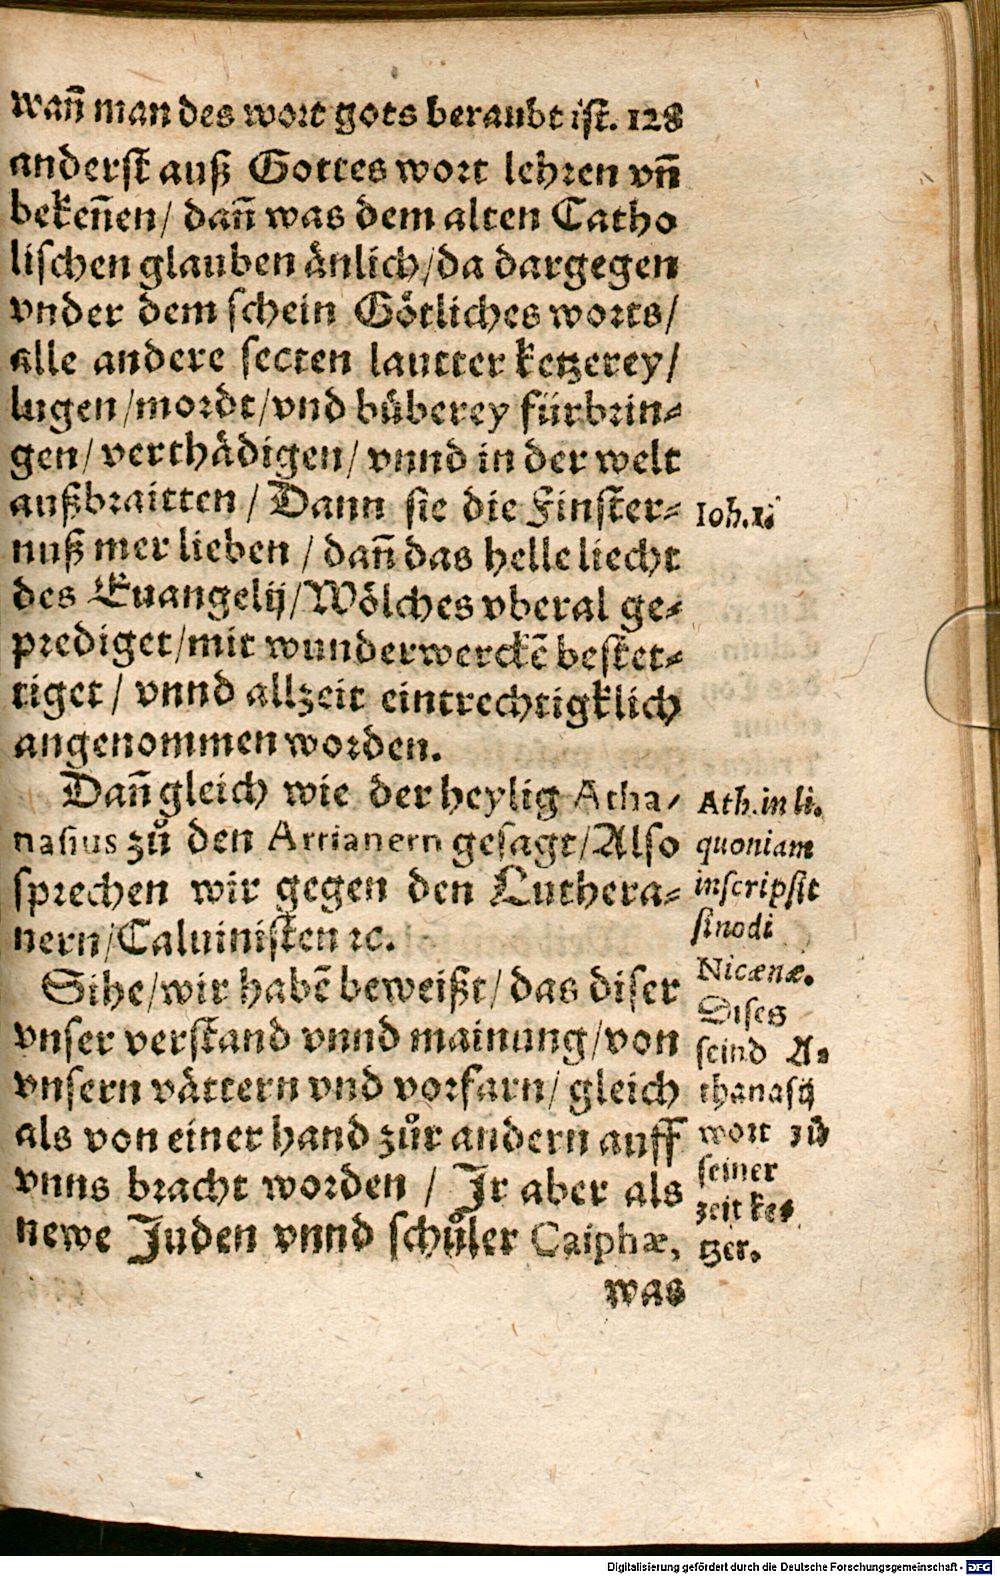 wañ man des wort gots beraubt ist. 128
anderst auß Gottes wort lehren vñ
bekeñen/ dañ was dem alten Catho
lischen glauben änlich/da dargegen
vnder dem schein Götliches worts/
alle andere secten lautter ketzerey/
lugen/mordt/vnd büberey fürbrin-
gen/ verthädigen/ vnnd in der welt
außbraitten/ Dann sie die Finster-
nuß mer lieben / dañ das helle liecht
des Euangelij/Wölches vberal ge-
prediget/mit wunderwerckē bestet-
tiget/ vnnd allzeit eintrechtigklich
angenommen worden.
Dañ gleich wie der heylig Atha-
nasius zů den Arrianern gesagt/Also
sprechen wir gegen den Luthera-
nern/Caluinisten ꝛc.
Sihe/wir habē beweißt/ das diser
vnser verstand vnnd mainung/von
vnsern vättern vnd vorfarn/ gleich
als von einer hand zůr andern auff
vnns bracht worden / Jr aber als
newe Juden vnnd schůler Caiphæ,
was
Ioh.1.
Ath.in li.
quoniam
inscripsit
sinodi
Nicænæ.
Dises
seind A-
thanasij
wort zů
seiner
zeit ke-
tzer.
Digitalisierung gefördert durch die Deutsche Forschungsgemeinschaft - DFG